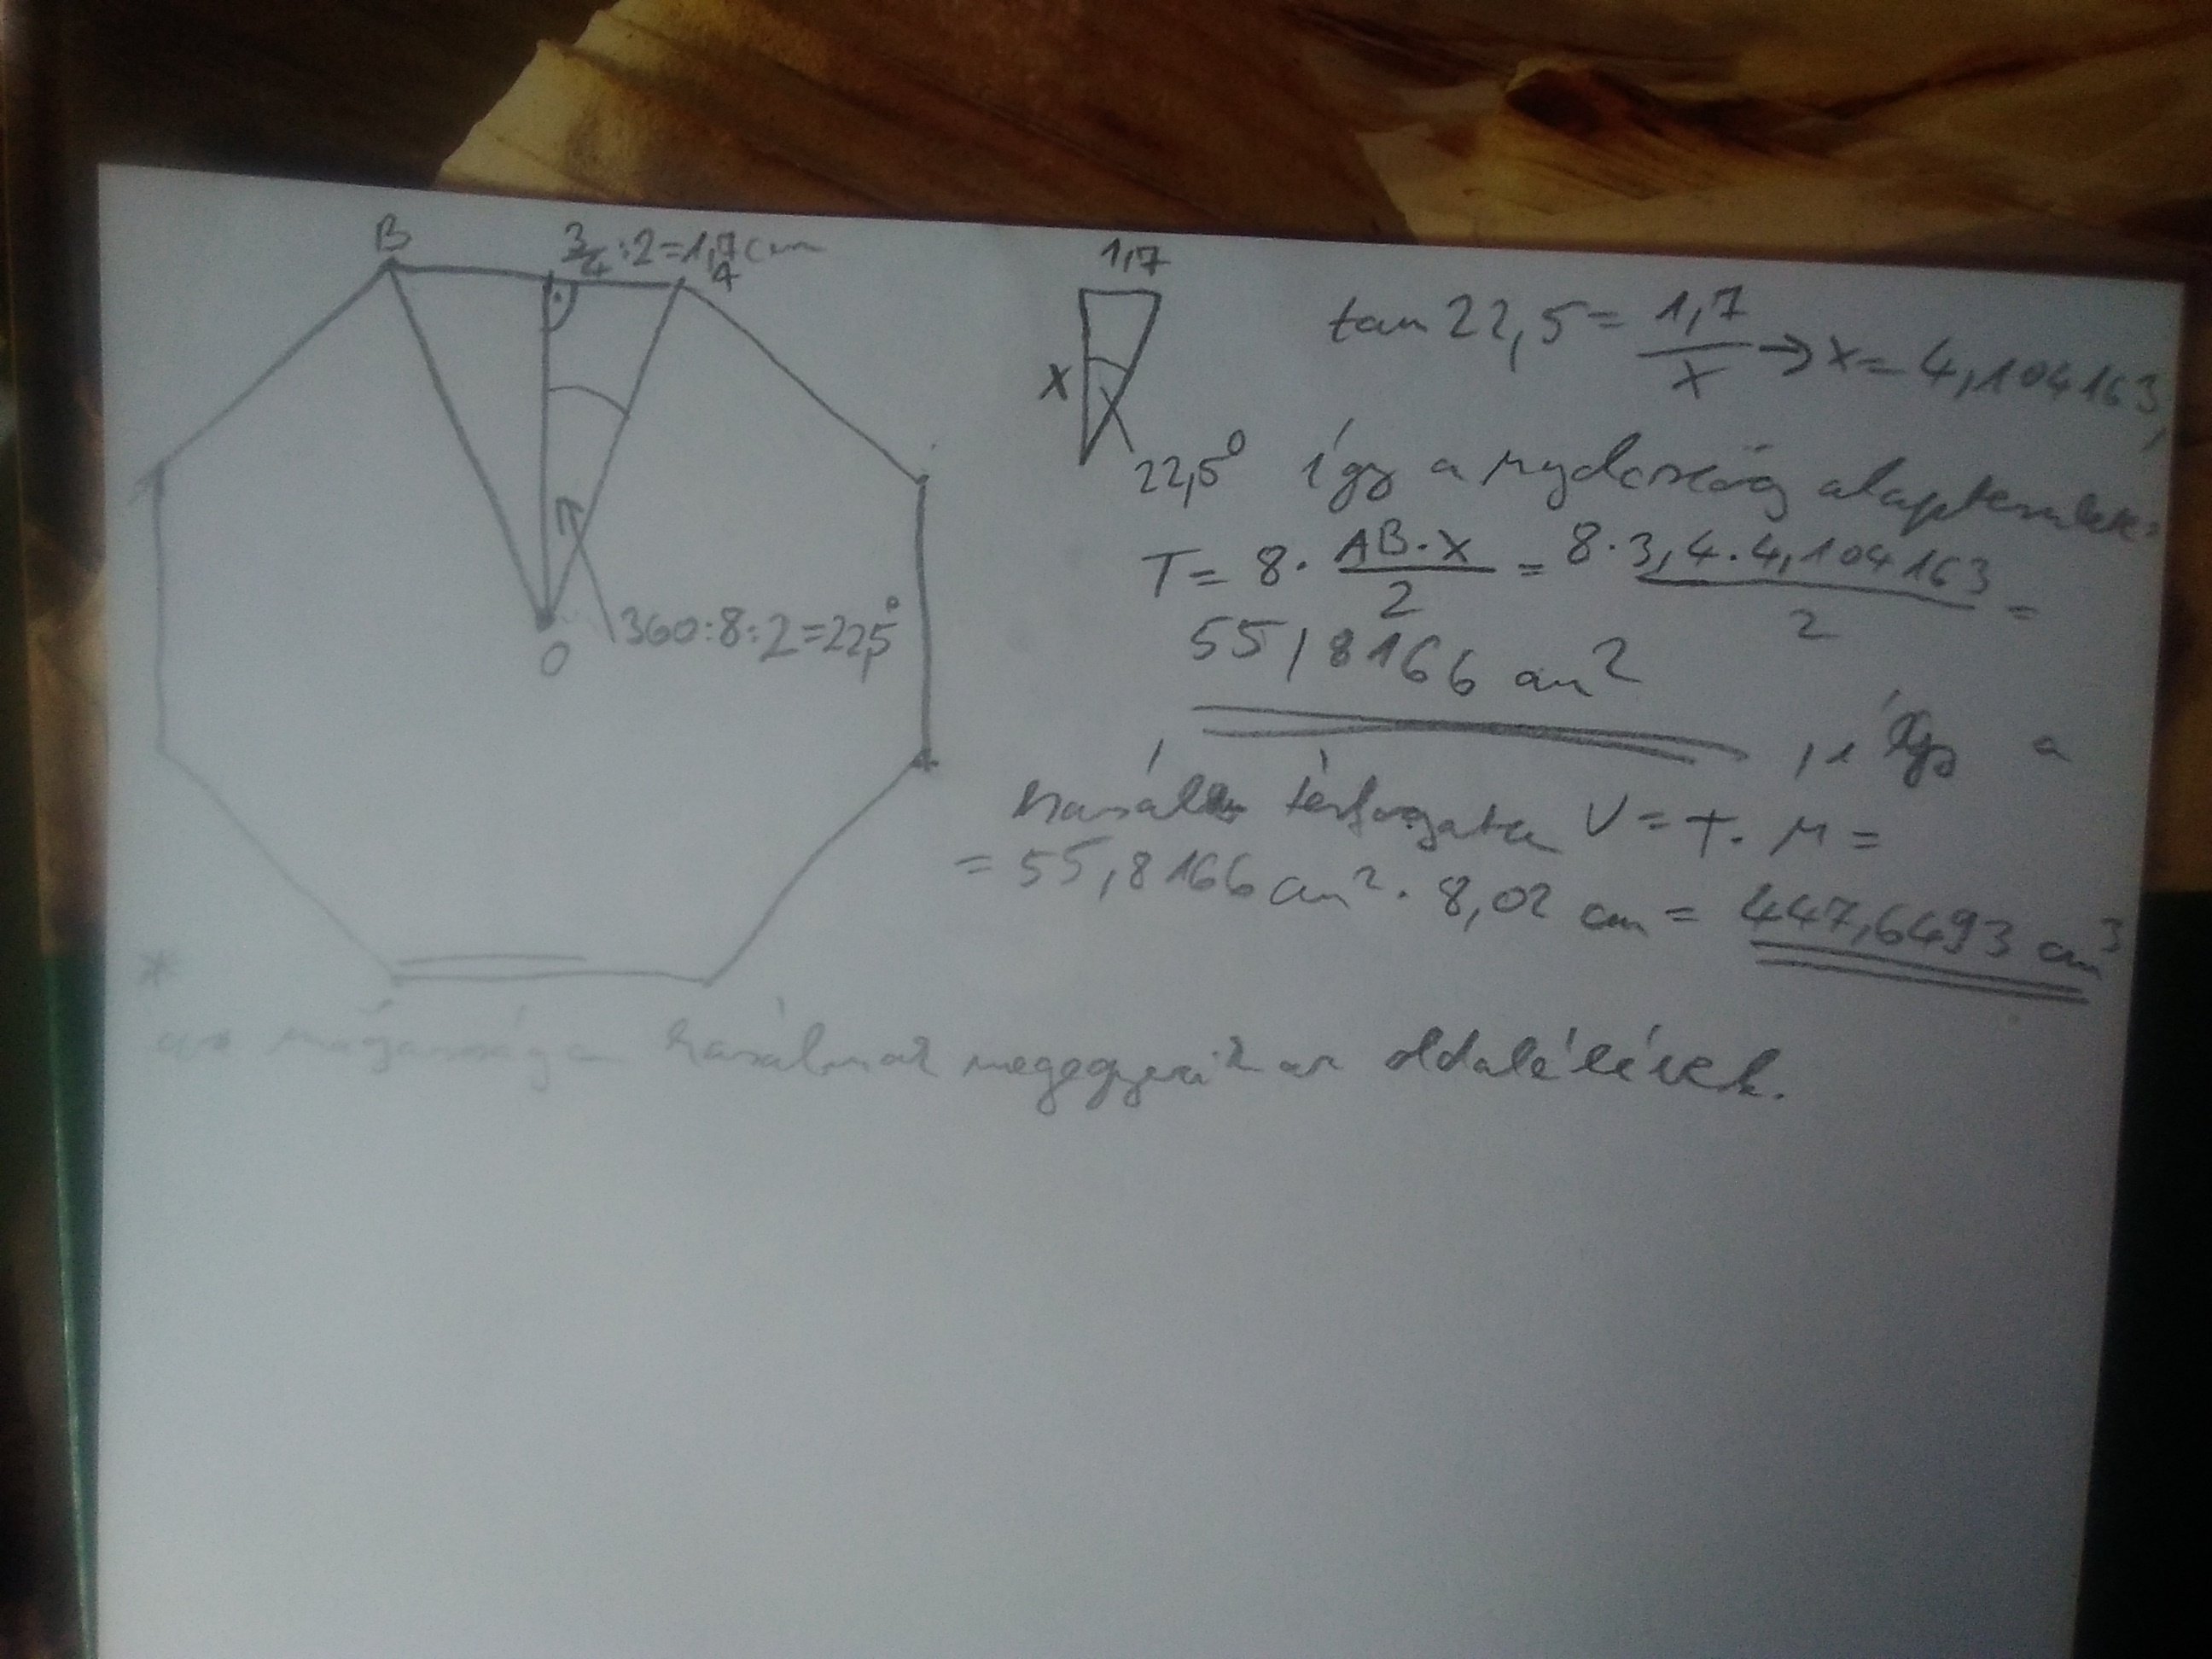 B
3/4:2=1,7cm
A
O
360:8:2=22,5°
1,7
x
22,5°
tan 22,5 = 1,7/x → x = 4,104163,
így a nyolcszög alapterülete:
T = 8 · AB·x/2 = 8·3,4·4,104163/2 =
55,8166 cm²
, így a
hasáb térfogata V = T · M =
= 55,8166 cm² · 8,02 cm = 447,6493 cm³
*
magassága hasábnak megegyezik az oldalélével.